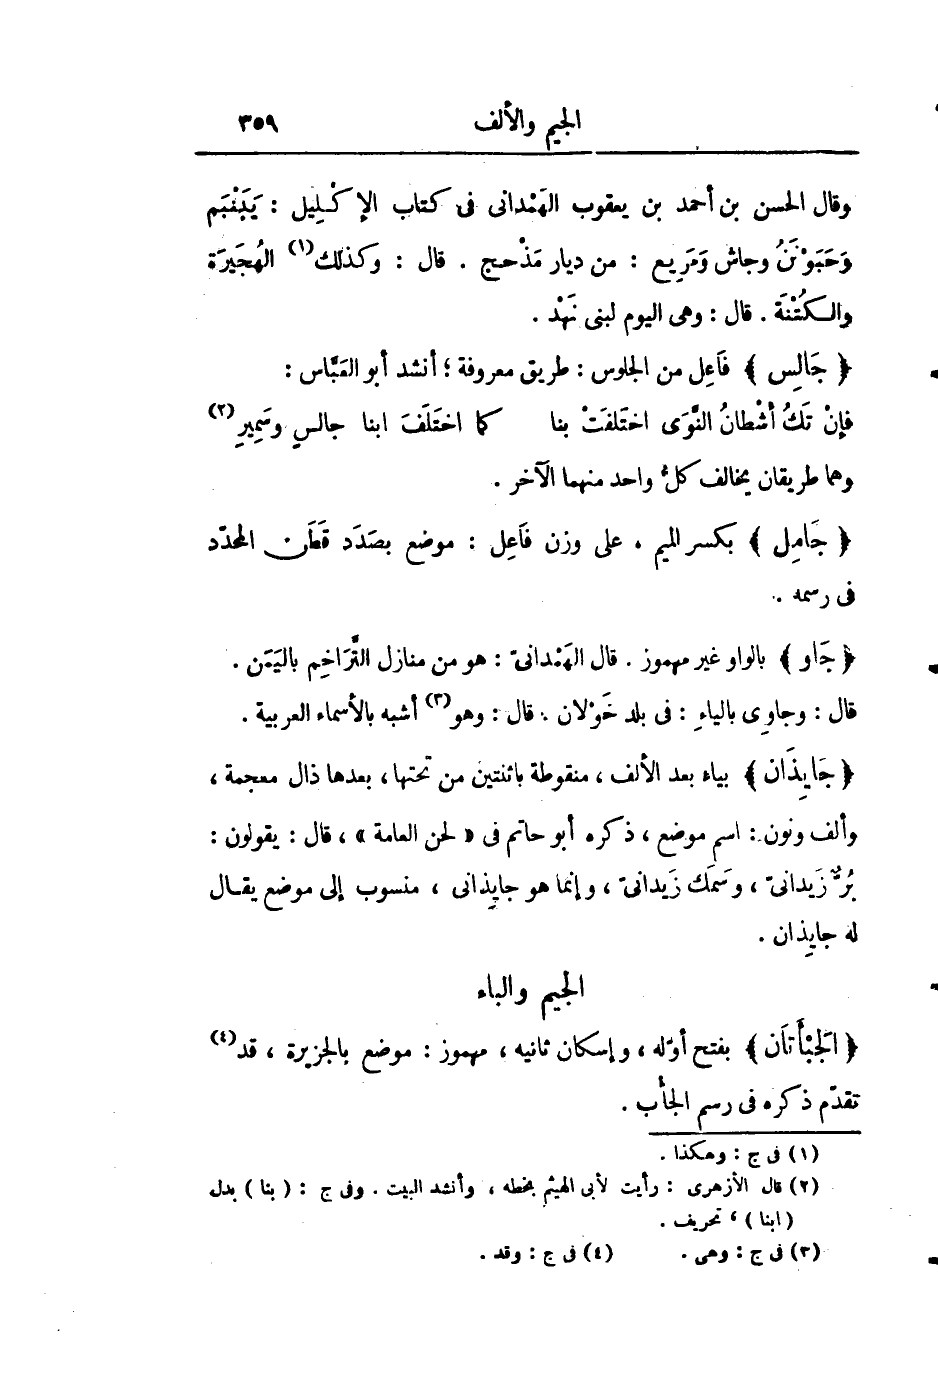 الجيم والألف ٣٥٩
وقال الحسن بن أحمد بن يعقوب الهَمْدانى فى كتاب الإكْـلِيل : يَبَنْبَم
وَحَبَوْنَنُ وجاش وَمَرِيـع : من ديار مَذْحـج . قال : وكذلك(١) الهُجَيرَة
والـكُتْنَة . قال : وهى اليوم لبنى نَهْد .
﴿ جَالِس ﴾ فَاَعِل من الجلوس : طريق معروفة ؛ أنشد أبو العَبَّاس :
فإنْ تَكُ أشْطانُ النَّوَى اختَلفَتْ بنا كما اختَلَفَ ابنا جالسٍ وسَمِيرِ(٢)
وهما طريقان يخالف كلُّ واحد منهما الآخر .
﴿ جَامِل ﴾ بكسر الميم ، على وزن فَاَعِل : موضع بصَدَد قَطَن المحدّد
فى رسمه .
﴿ جَاو ﴾ بالواو غير مهموز . قال الهَمْدانىّ : هو من منازل التَّرَاخِم باليَمَن .
قال : وجاوِى بالياءِ : فى بلد خَوْلان . قال : وهو(٣) أشبه بالأسماء العربية .
﴿ جَايِذَان ﴾ بياء بعد الألف ، منقوطة باثنتين من تحتها ، بعدها ذال معجمة ،
وألف ونون : اسم موضع ، ذكره أبو حاتم فى « لحن العامة » ، قال : يقولون :
بُرٌّ زَيدانىّ ، وسَمَك زَيدانىّ ، وإنما هو جايِذانى ، منسوب إلى موضع يقـال
له جايِذان .
الجيم والباء
﴿ الجَبْأَتَان ﴾ بفتح أوّله ، وإسكان ثانيه ، مهموز : موضع بالجزيرة ، قد(٤)
تقدّم ذكره فى رسم الجأب .
(١) فى ج : وهكذا .
(٢) قال الأزهرى : رأيت لأبى الهيثم بخطه ، وأنشد البيت . وفى ج : ( بنا ) بدل
( ابنا ) ، تحريف .
(٣) فى ج : وهى . (٤) فى ج : وقد .